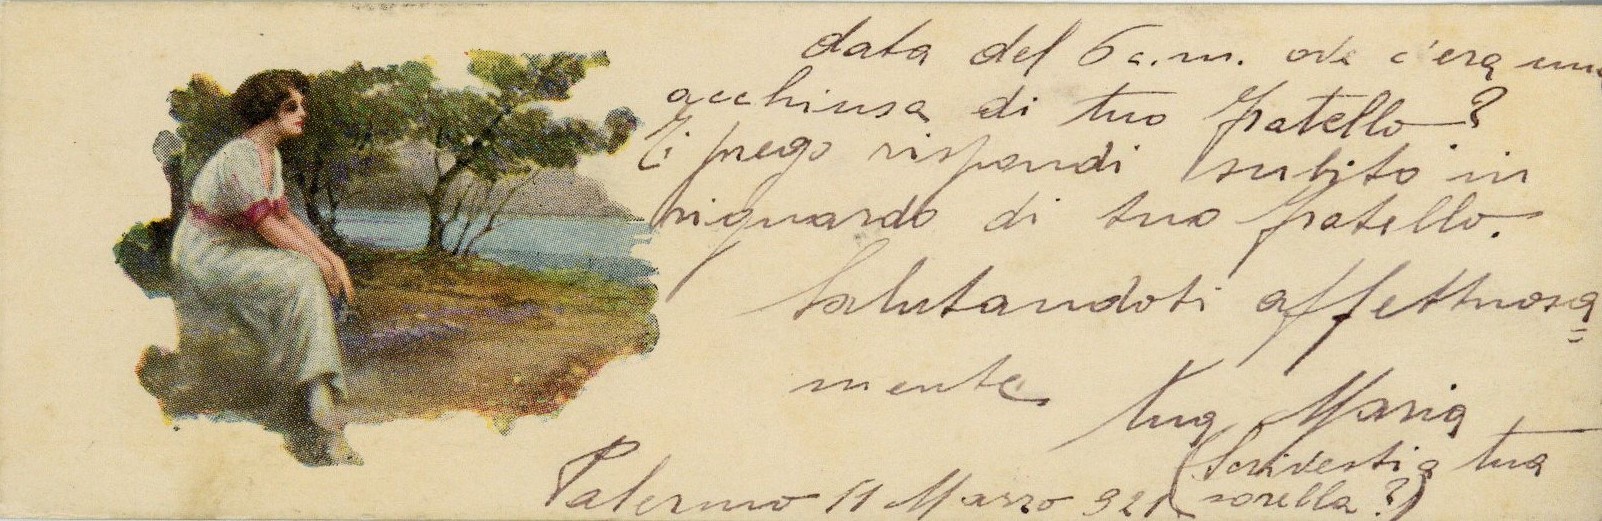 data del 6 c.m. ove c'era una
acchiusa di tuo fratello?
Ti prego rispondi subito in
riguardo di tuo fratello.
Salutandoti affettuosa=
mente
tua Maria
(Scrivesti a tua
sorella?)
Palermo 11 Marzo 921